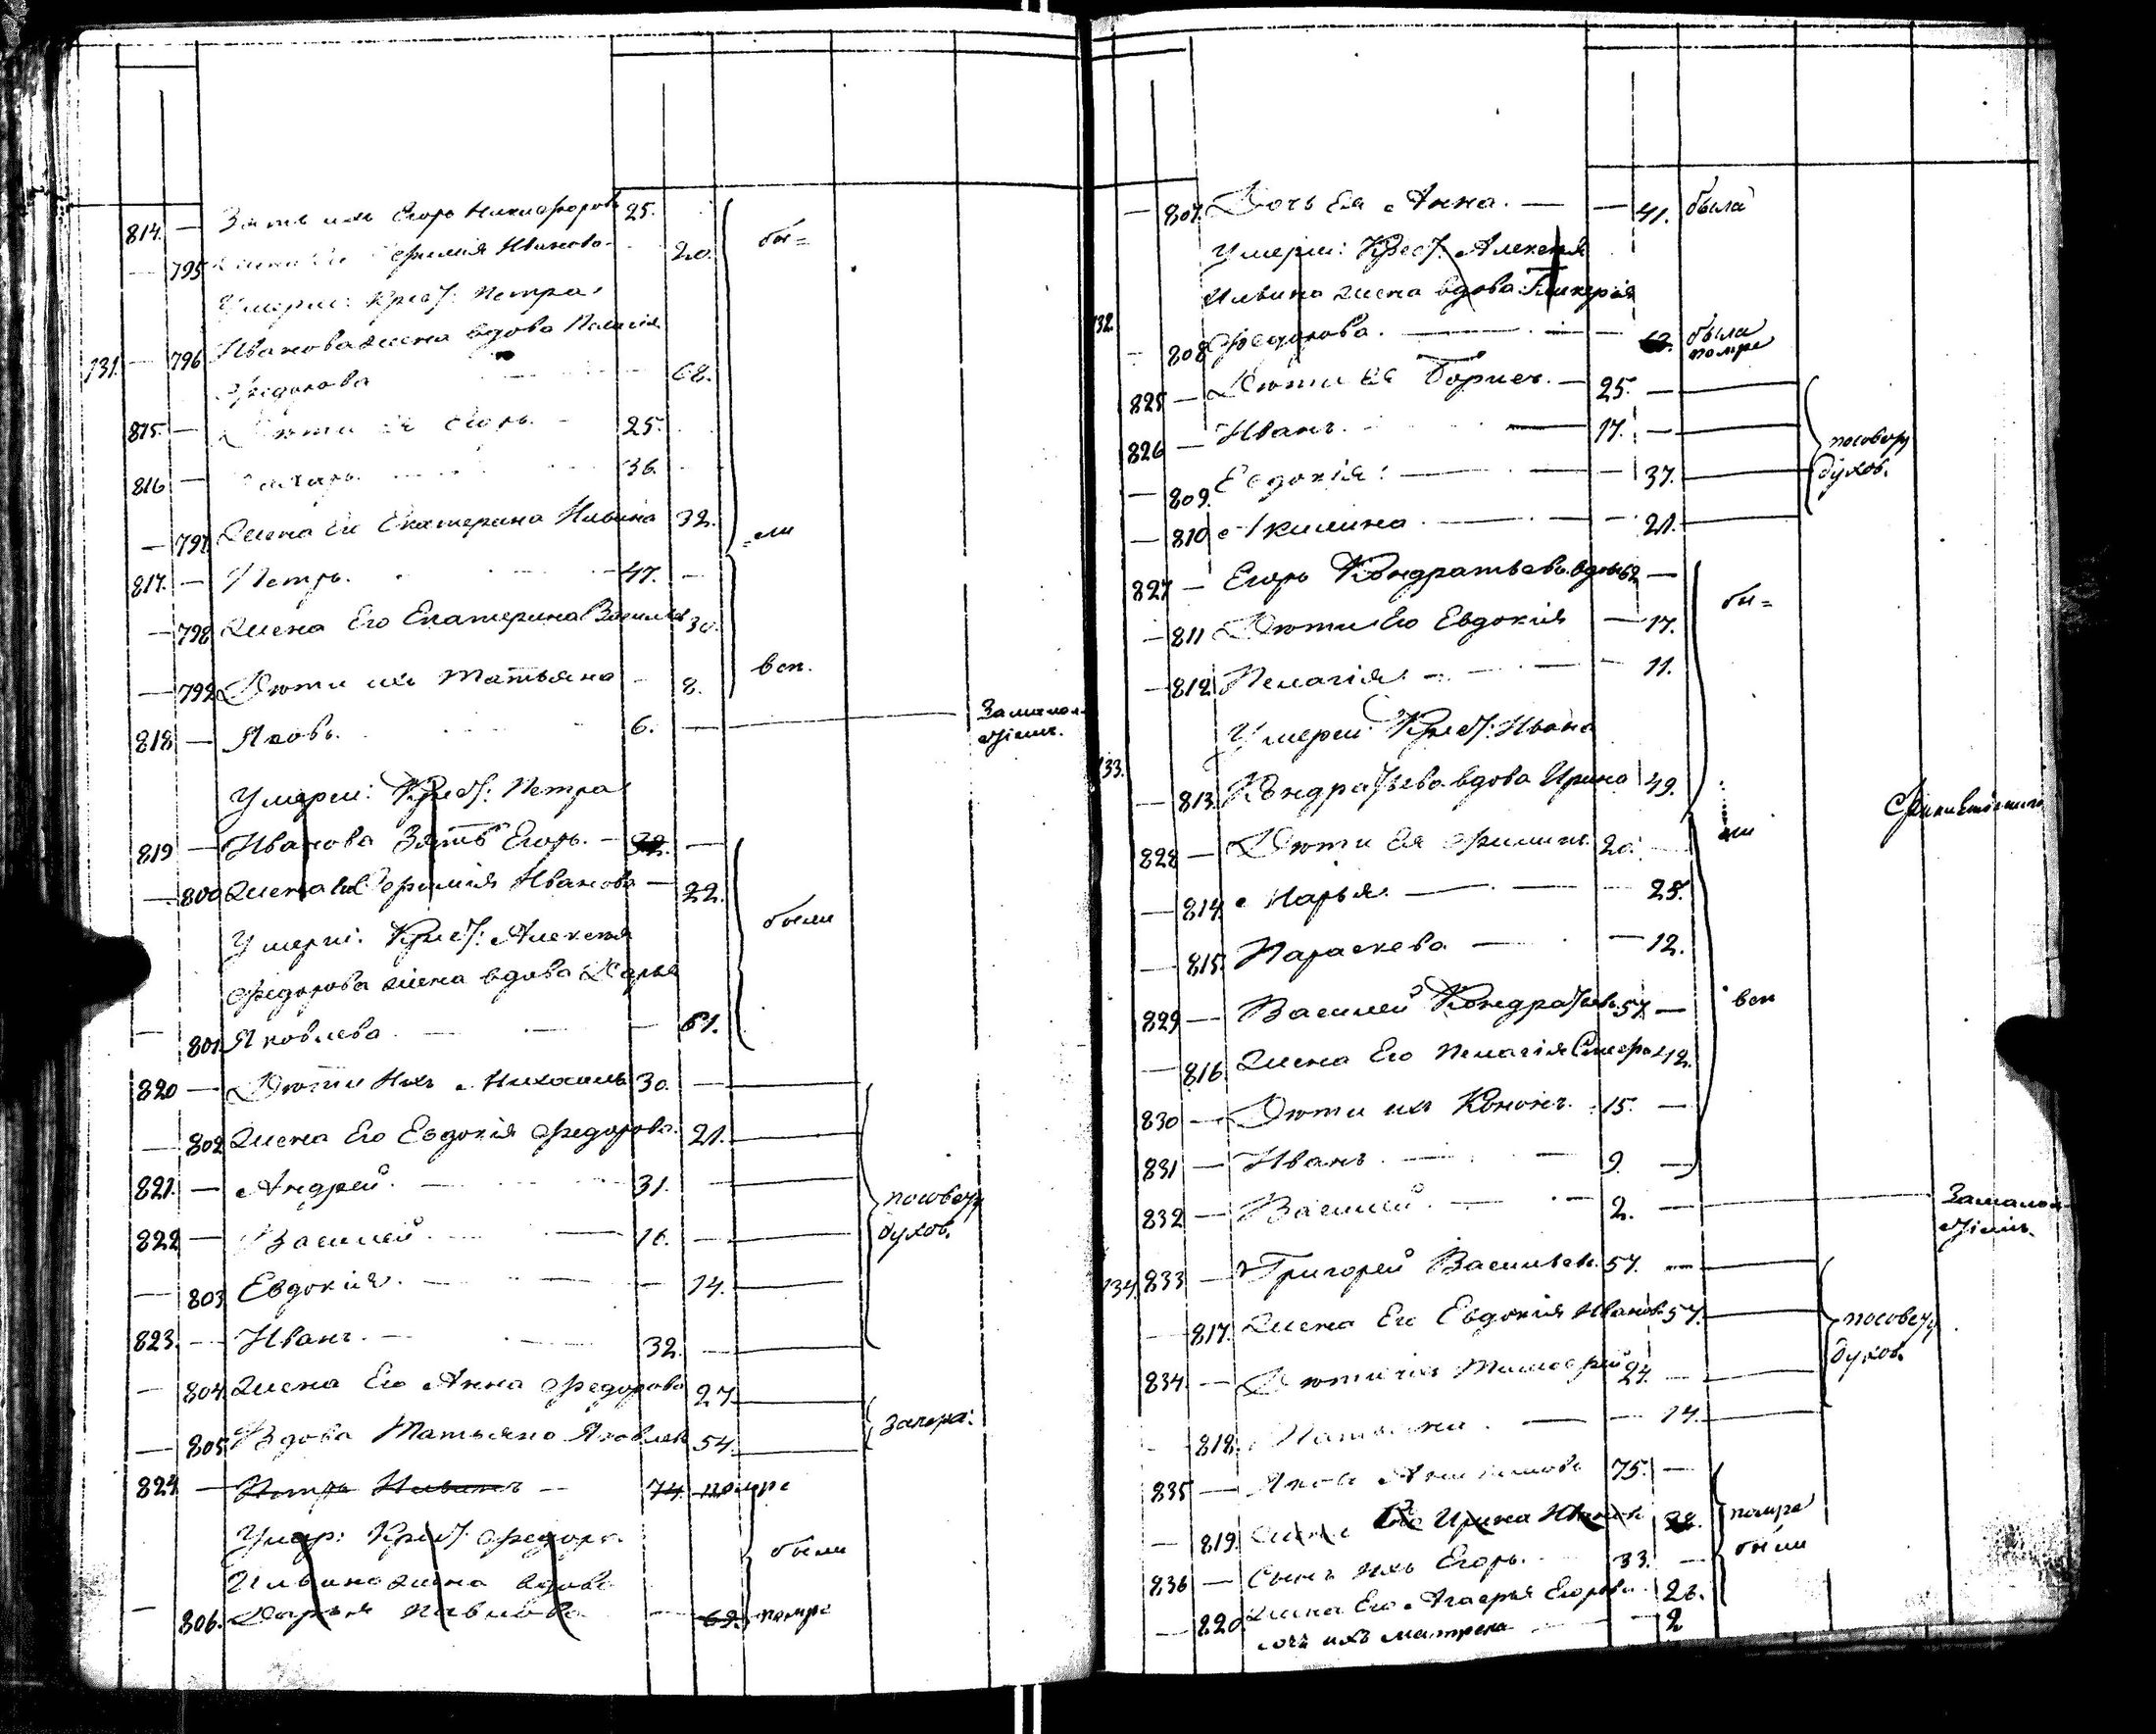 814. — Зять ихъ Егоръ Никифоровъ 25.
— 795 Жена Ео Ефимія Иванова 20. бы=
Умерш: Крест: Петра
131. — 796 Иванова жена вдова Пелагія
Федорова 68.
815. — Дѣти Ея Егоръ. — 25.
816 — Захаръ. 36.
— 797 Жена Ео Екатерина Ильина 32. =ли
817. — Петръ. — 47. —
— 798 Жена Его Екатерина Васильев 30.
— 799 Дѣти ихъ Татьяна — 8. всп.
818 — Яковъ. 6. — Замалол
ѣтiем.
Умерш: Крест: Петра
819 — Иванова Зять Егоръ. — 32. —
— 800 Жена Ео Ефимія Иванова — 22.
были
Умерш: Крест: Алексея
Федорова жена вдова Дарья
— 801 Яковлева — — 61.
820 — Дѣти Ихъ Михаилъ 30. —
— 802 Жена Его Евдокія Федорова. 21.
821. — Андрей. — 31. — посовету
822 — Василей — 16. — духов.
— 803 Евдокія. — — 14.
823. — Иванъ. — 32. —
— 804 Жена Его Анна Федорова 27.
— 805 Вдова Татьяна Яковлев 54. запера:
824 — Петръ Ильинъ — 74. помре
Умер: Крест Федора
Ильина жена вдова были
— 806. Дарья Павлова — 62. помре
— 807. Дочь Ея Анна. — — 41. была
Умерш: Крест: Алексея
Ильина жена вдова Гликерія
132. — 808 Федорова. — — была
помре
825 — Дѣти Ея Борисъ. — 25. —
826 — Иванъ. — 17. — посовету
— 809. Евдокія: — — 37. духов.
— 810 Акилина — — 21.
827 — Егоръ Кондратьевъ вдов 62 — бы=
— 811 Дѣти Его Евдокія — 17.
— 812 Пелагія. — — 11.
Умерш Крест: Ивана
133. — 813. Кондратьева вдова Ирина 49.
828 — Дѣти Ея Филипъ 20. — ли
— 814. Марья. — — 25.
— 815. Параскева — — 12.
829 — Василей Кондратьев 57 — всп
— 816 Жена Его Пелагія 42.
830 — Дѣти ихъ Кононъ. 15. —
831 — Иванъ. — — 9. —
832 — Василей. — — 2. — Замалол
ѣтiем.
134. 833 — Григорей Васильев. 57. —
— 817. Жена Его Евдокія Иванов. 57. посовету
834. — Дѣти ихъ Тимофей 24. — духов.
— 818. Татьяна. — — 14.
835 — Яковъ 75. —
— 819. Жена Его Ирина Иванов помре
836 — Сынъ Ихъ Егоръ. 33. — были
— 820. Жена Его Агафья Егорова. 26.
дочь ихъ матрена — 2